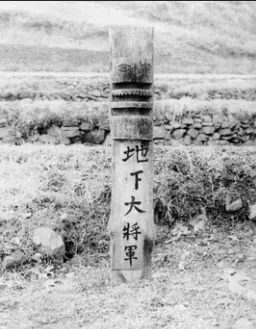 地下大將軍